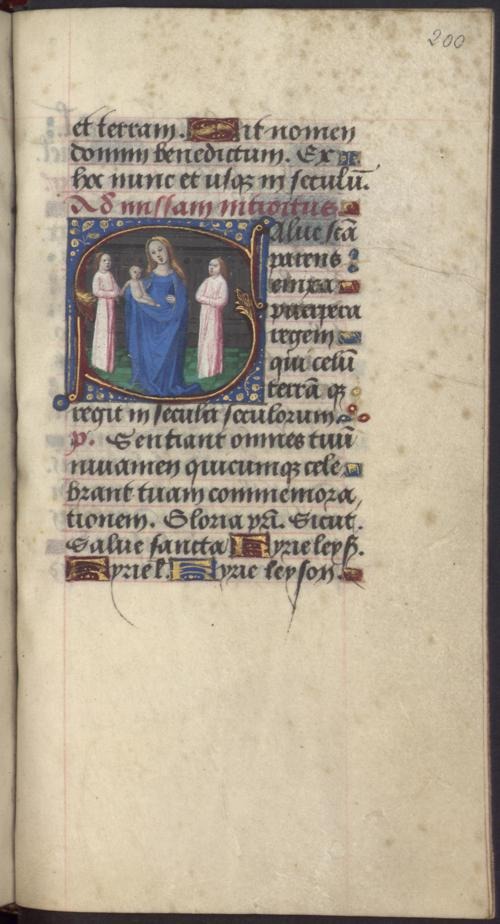 200
et terram. Sit nomen
domini benedictum. Ex
hoc nunc et usq in seculū.
Ad missam introitus
Salue scā
parens
enixa
puerpera
regem
qui celū
terrā q
regit in secula seculorum
p. Sentiant omnes tuū
iuuamen quicumq cele
brant tuam commemora,
tionem. Gloria pri. Sicut.
Salue sancta Kyrie leys.
Kyrie l. Kyrie leyson.